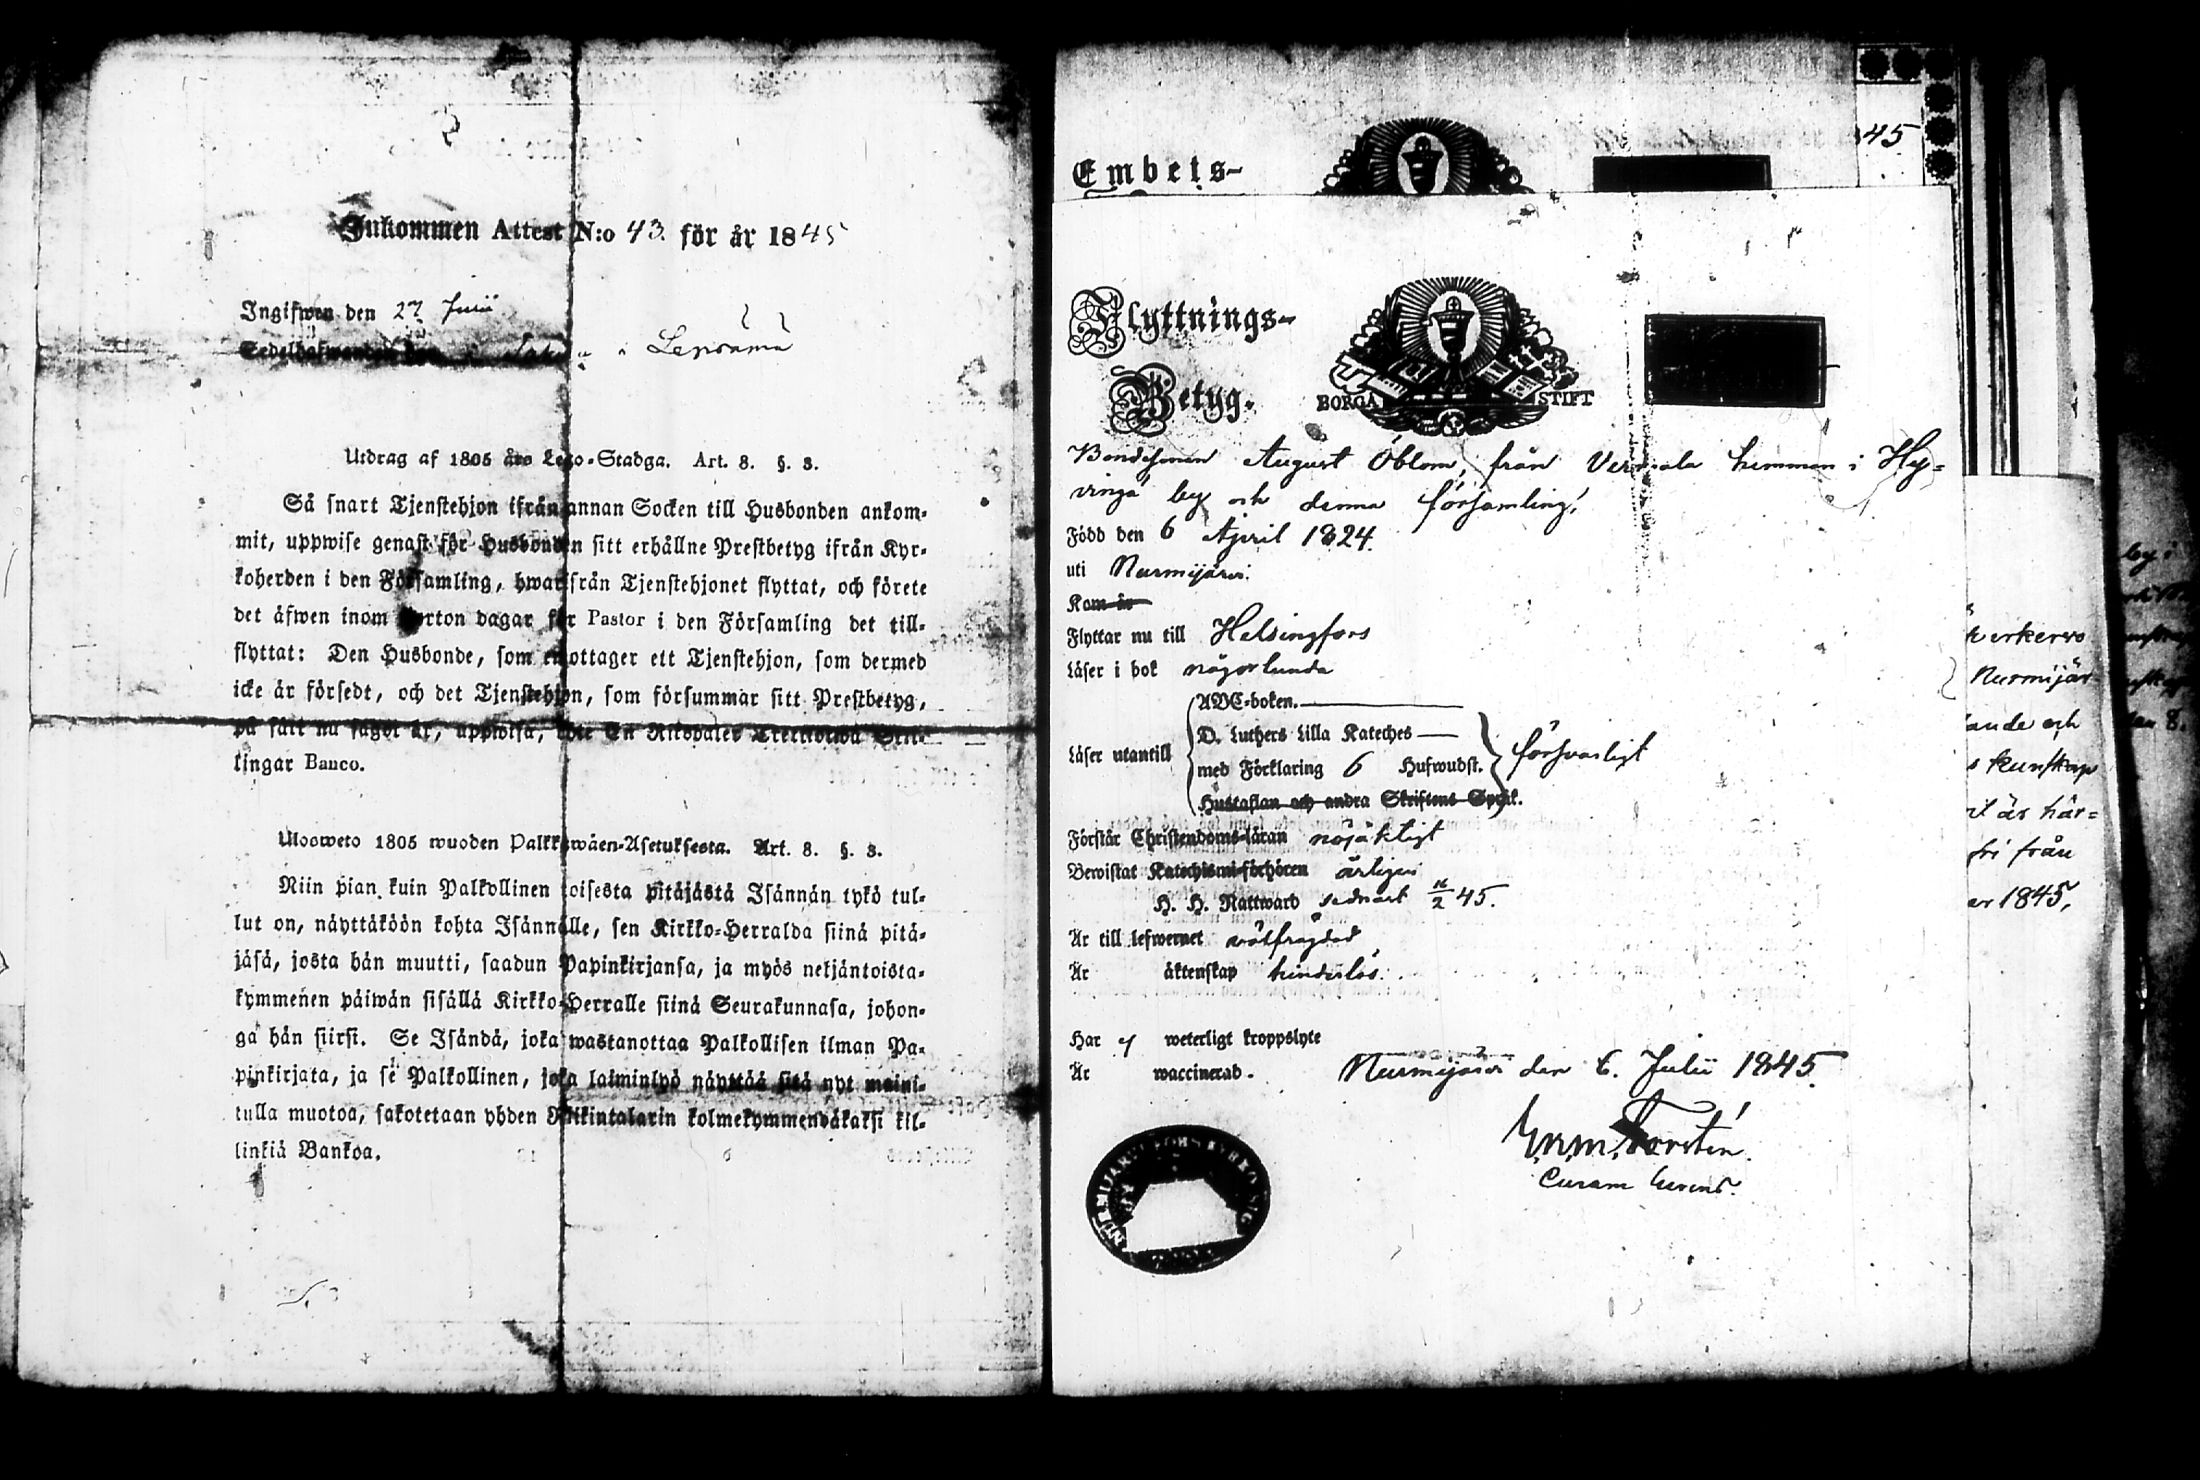 Inkommen Attest N:o 43. för år 1845
Ingifwen den 27 Julii
Sedelhafwanden i Lepsämä
Utdrag af 1805 års Lego-Stadga. Art. 8. §. 3.
Så snart Tjenstehjon ifrån annan Socken till Husbonden ankom-
mit, uppwise genast för Husbonden sitt erhållne Prestbetyg ifrån Kyr-
koherden i den Församling, hwarifrån Tjenstehjonet flyttat, och förete
det äfwen inom fjorton dagar för Pastor i den Församling det till-
flyttat: Den Husbonde, som emottager ett Tjenstehjon, som dermed
icke är försedt, och det Tjenstehjon, som försummar sitt Prestbetyg,
på sätt nu sagdt är, uppwisa, böte En Riksdaler Trettiotwå Skil-
lingar Banco.
Uloosweto 1805 wuoden Palkkawäen-Asetuksesta. Art. 8. §. 3.
Niin pian kuin Palkollinen toisesta pitäjästä Isännän tykö tul-
lut on, näyttäköön kohta Isännälle, sen Kirkko-Herralda siinä pitä-
jäsä, josta hän muutti, saadun Papinkirjansa, ja myös neljäntoista-
kymmenen päiwän sisällä Kirkko-Herralle siinä Seurakunnasa, johon-
ga hän siirsi. Se Isändä, joka wastanottaa Palkollisen ilman Pa-
pinkirjata, ja se Palkollinen, joka laiminlyö näyttää sitä nyt maini-
tulla muotoa, sakotetaan yhden Riikintalarin kolmekymmendäkaksi kil-
linkiä Bankoa.
Embets-
45
Flyttnings-
Betyg.
BORGÅ STIFT
Bondesonen August Öblom, från Vermala hemman i Hy-
vinge by och denna församling,
Född den 6 April 1824.
uti Nurmijärvi.
Kom år
Flyttar nu till Helsingfors
Läser i bok någorlunda
ABC-boken.
D. Luthers Lilla Kateches
Läser utantill med Förklaring 6 Hufwudst. försvarligt
Hustaflan och andra Skriftens Språk.
Förstår Christendoms-läran nöjaktligt
Bewistat Katechismi-förhören årligen
H. H. Nattward sednast 16/2 45.
Är till lefwernet wälfrägdad
Är äktenskap hinderlös.
Har ej weterligt kroppslyte
Är waccinerad.
Nurmijärvi den 6. Julii 1845.
Forstén.
Curam Gerens.
kerkervo
Nurmijär
ande och
s kunskap
it är här-
fri från
er 1845,
by i